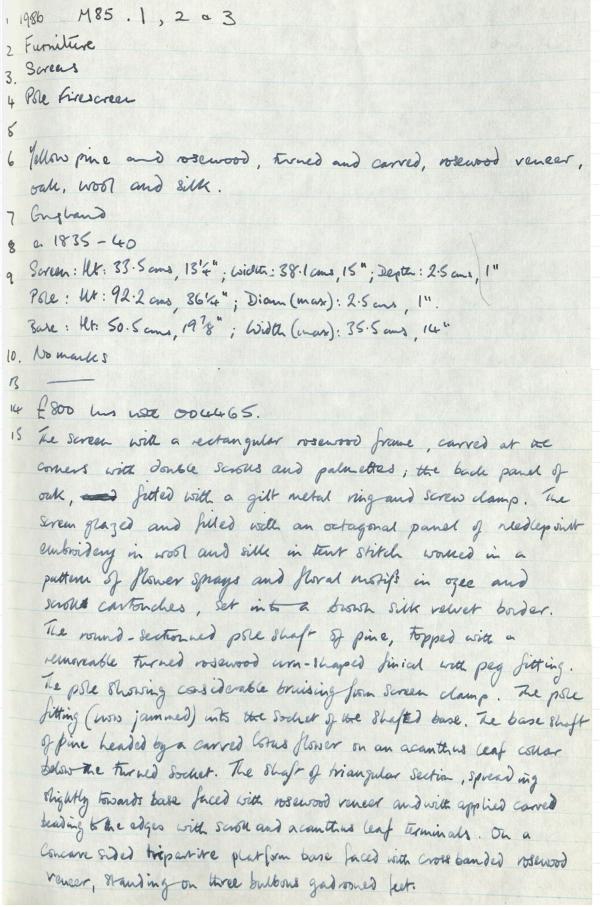 1 1986 M85 . 1, 2 & 3
2 Furniture
3. Screens
4 Pole Firescreen
5
6 Yellow pine and rosewood, turned and carved, rosewood veneer,
oak, wool and silk.
7 England
8 c. 1835 - 40
9 Screen: Ht: 33.5cms, 13¼"; Width: 38.1cms, 15"; Depth: 2.5cms, 1"
Pole: Ht: 92.2cms, 36¼"; Diam (max): 2.5cms, 1".
Base: Ht: 50.5cms, 19⅞"; Width (max): 35.5cms, 14"
10. No marks
13 ——
14 £800 004465.
15 The screen with a rectangular rosewood frame, carved at the
corners with double scrolls and palmettes; the back panel of
oak, fitted with a gilt metal ring and screw clamp. The
screen glazed and filled with an octagonal panel of needlepoint
embroidery in wool and silk in tent stitch worked in a
pattern of flower sprays and floral motifs in ogee and
scroll cartouches, set into a brown silk velvet border.
The round-sectionned pole shaft of pine, topped with a
removeable turned rosewood urn-shaped finial with peg fitting.
The pole showing considerable bruising from screen clamp. The pole
fitting (now jammed) into the socket of the shafted base. The base shaft
of pine headed by a carved lotus flower on an acanthus leaf collar
below the turned socket. The shaft of triangular section, spreading
slightly towards base faced with rosewood veneer and with applied carved
beading to the edges with scroll and acanthus leaf terminals. On a
concave sided tripartite platform base faced with cross banded rosewood
veneer, standing on three bulbous gadrooned feet.